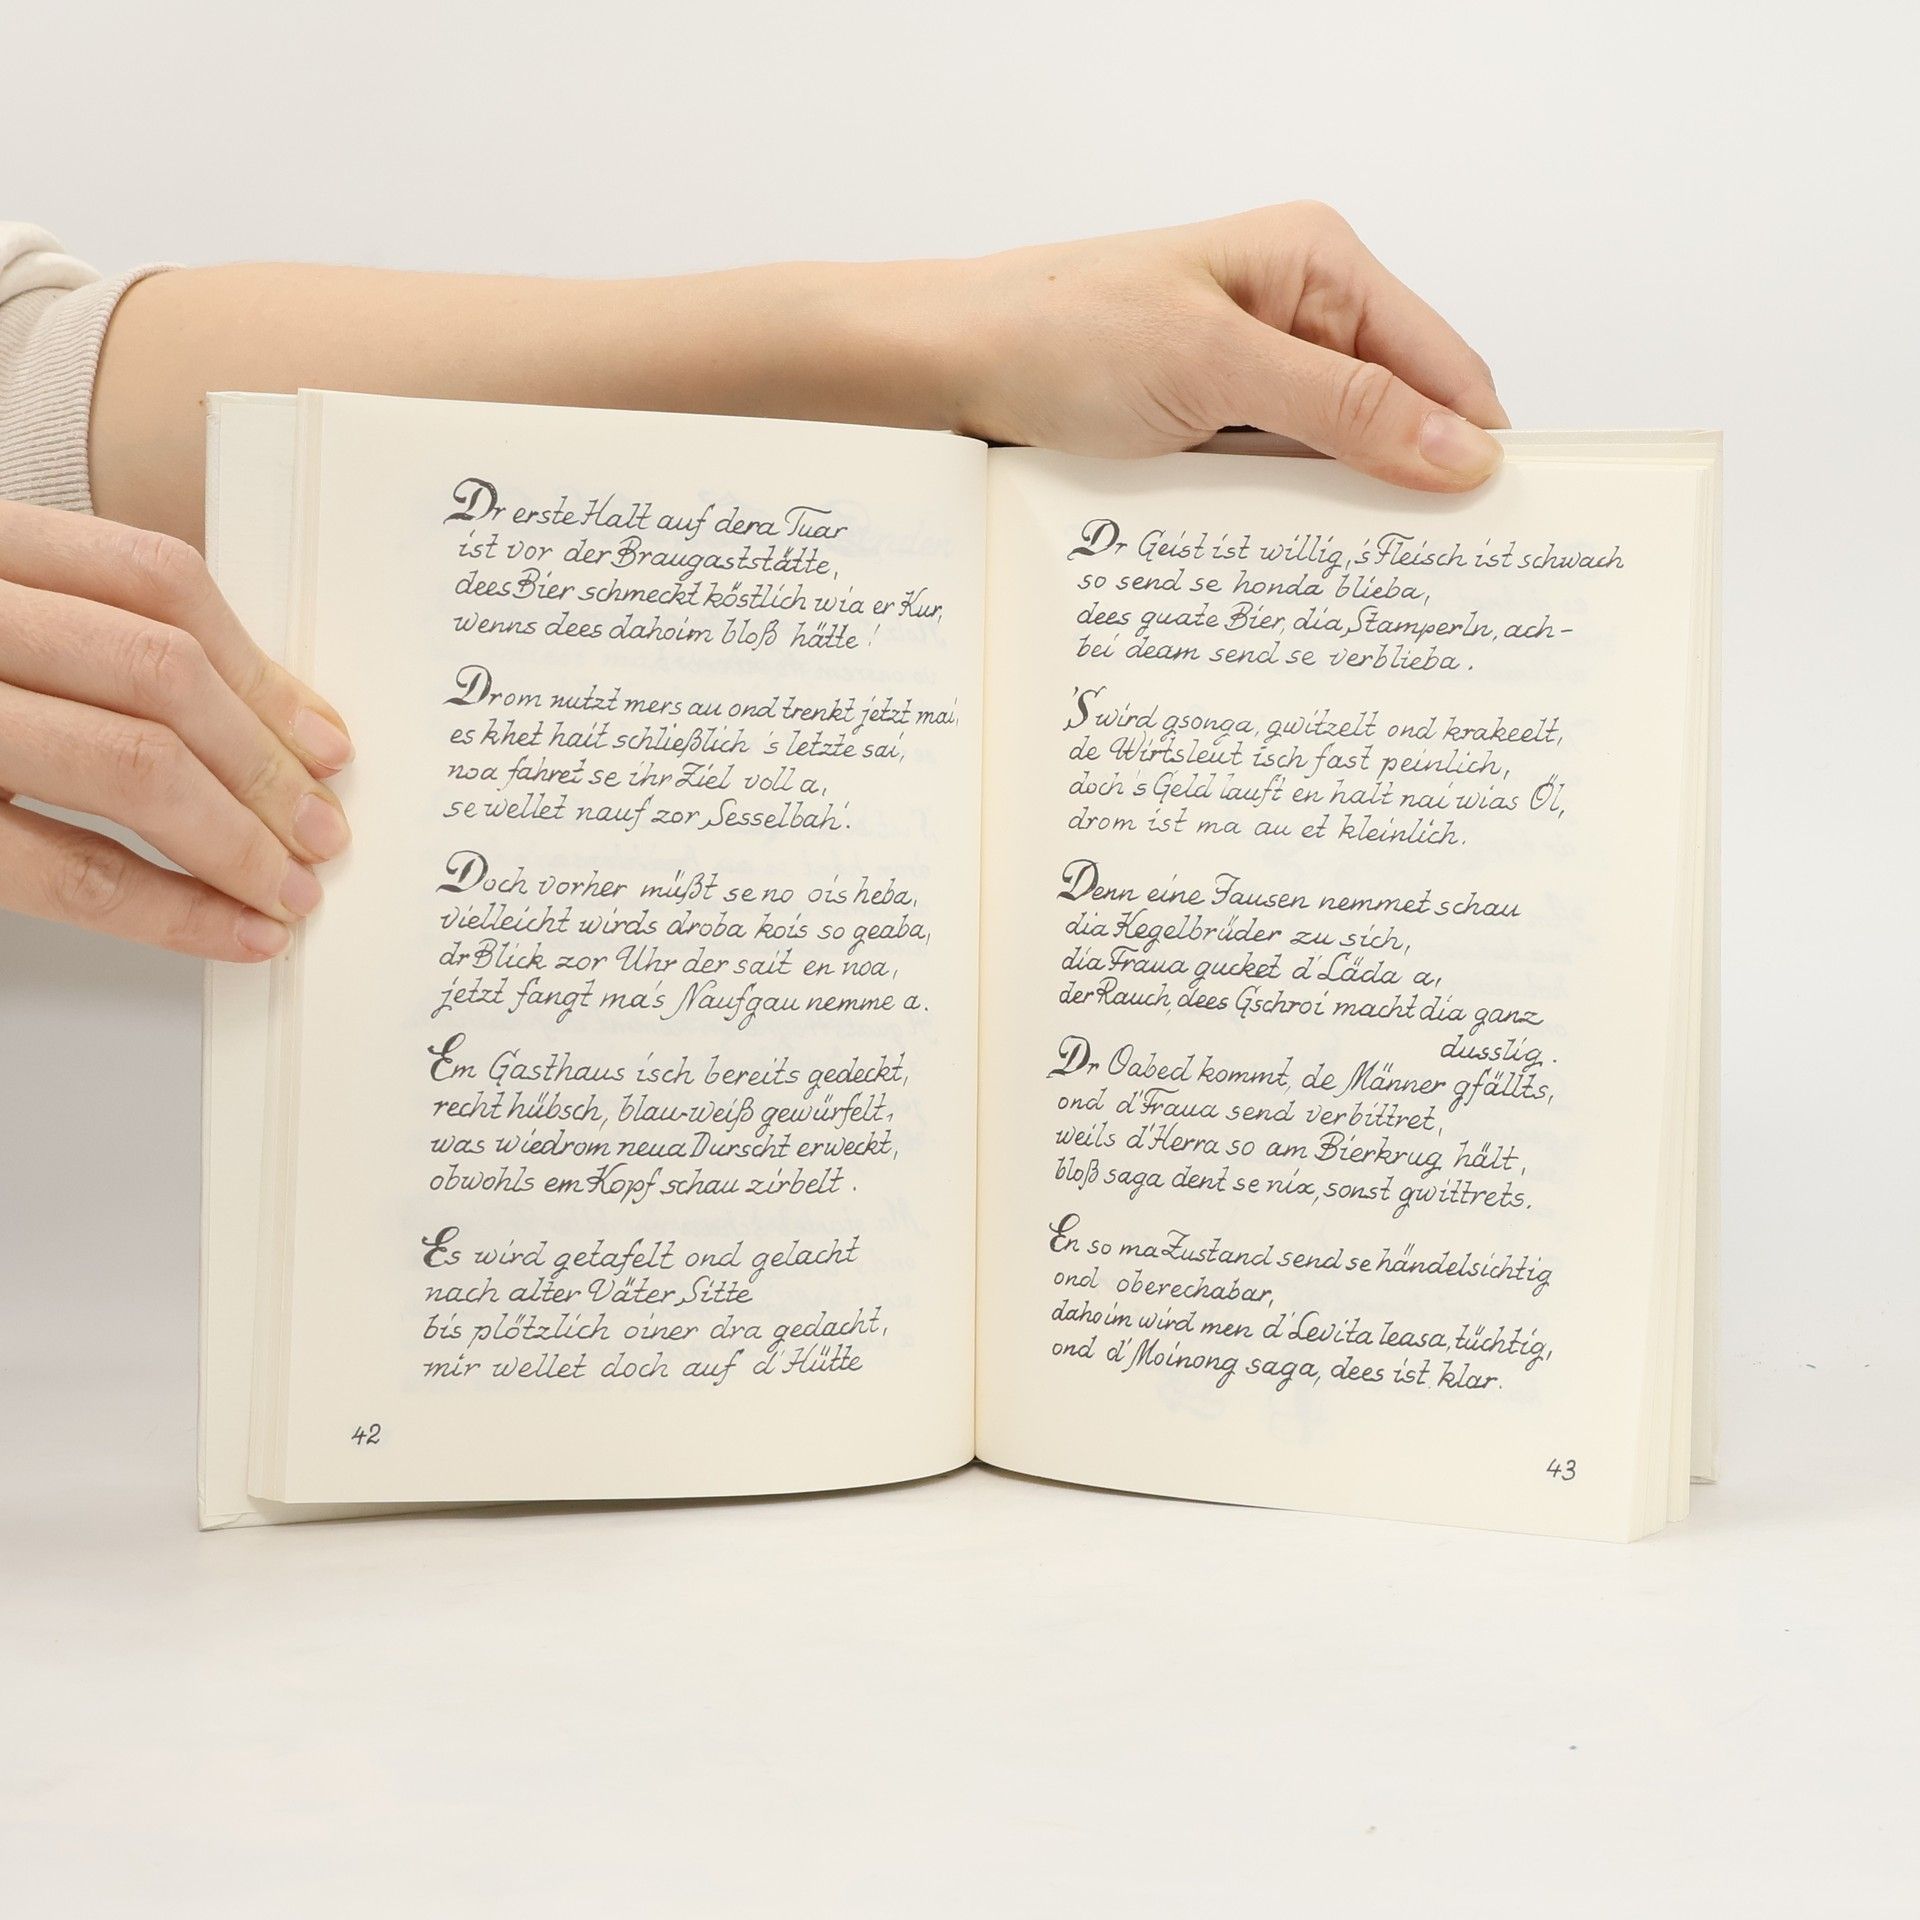 Dr erste Halt auf dera Tuar
ist vor der Braugaststätte,
dees Bier schmeckt köstlich wia er Kur,
wenns dees dahoim bloß hätte!
Drom nutzt mers au ond trenkt jetzt mai,
es khet hait schließlich 's letzte sai,
noa fahret se ihr Ziel voll a,
se wellet nauf zor Sesselbah'.
Doch vorher müßt se no ois heba,
vielleicht wirds droba kois so geaba,
dr Blick zor Uhr der sait en noa,
jetzt fangt ma's Naufgau nemme a.
Em Gasthaus isch bereits gedeckt,
recht hübsch, blau-weiß gewürfelt,
was wiedrom neua Durscht erweckt,
obwohls em Kopf schau zirbelt.
Es wird getafelt ond gelacht
nach alter Väter Sitte
bis plötzlich oiner dra gedacht,
mir wellet doch auf d'Hütte
42
Dr Geist ist willig, 's Fleisch ist schwach
so send se honda blieba,
dees guate Bier, dia Stamperln, ach-
bei deam send se verblieba.
'S wird gsonga, gwitzelt ond krakeelt,
de Wirtsleut isch fast peinlich,
doch 's Geld lauft en halt nai wias Öl,
drom ist ma au et kleinlich.
Denn eine Fausen nemmet schau
dia Kegelbrüder zu sich,
dia Fraua gucket d'Läda a,
der Rauch, dees Gschroi macht dia ganz
dusslig.
Dr Oabed kommt, de Männer gfällts,
ond d'Fraua send verbittret,
weils d'Herra so am Bierkrug hält,
bloß saga dent se nix, sonst gwittrets.
En so ma Zustand send se händelsichtig
ond oberechabar,
dahoim wird men d'Levita leasa, tüchtig,
ond d'Moinong saga, dees ist klar.
43